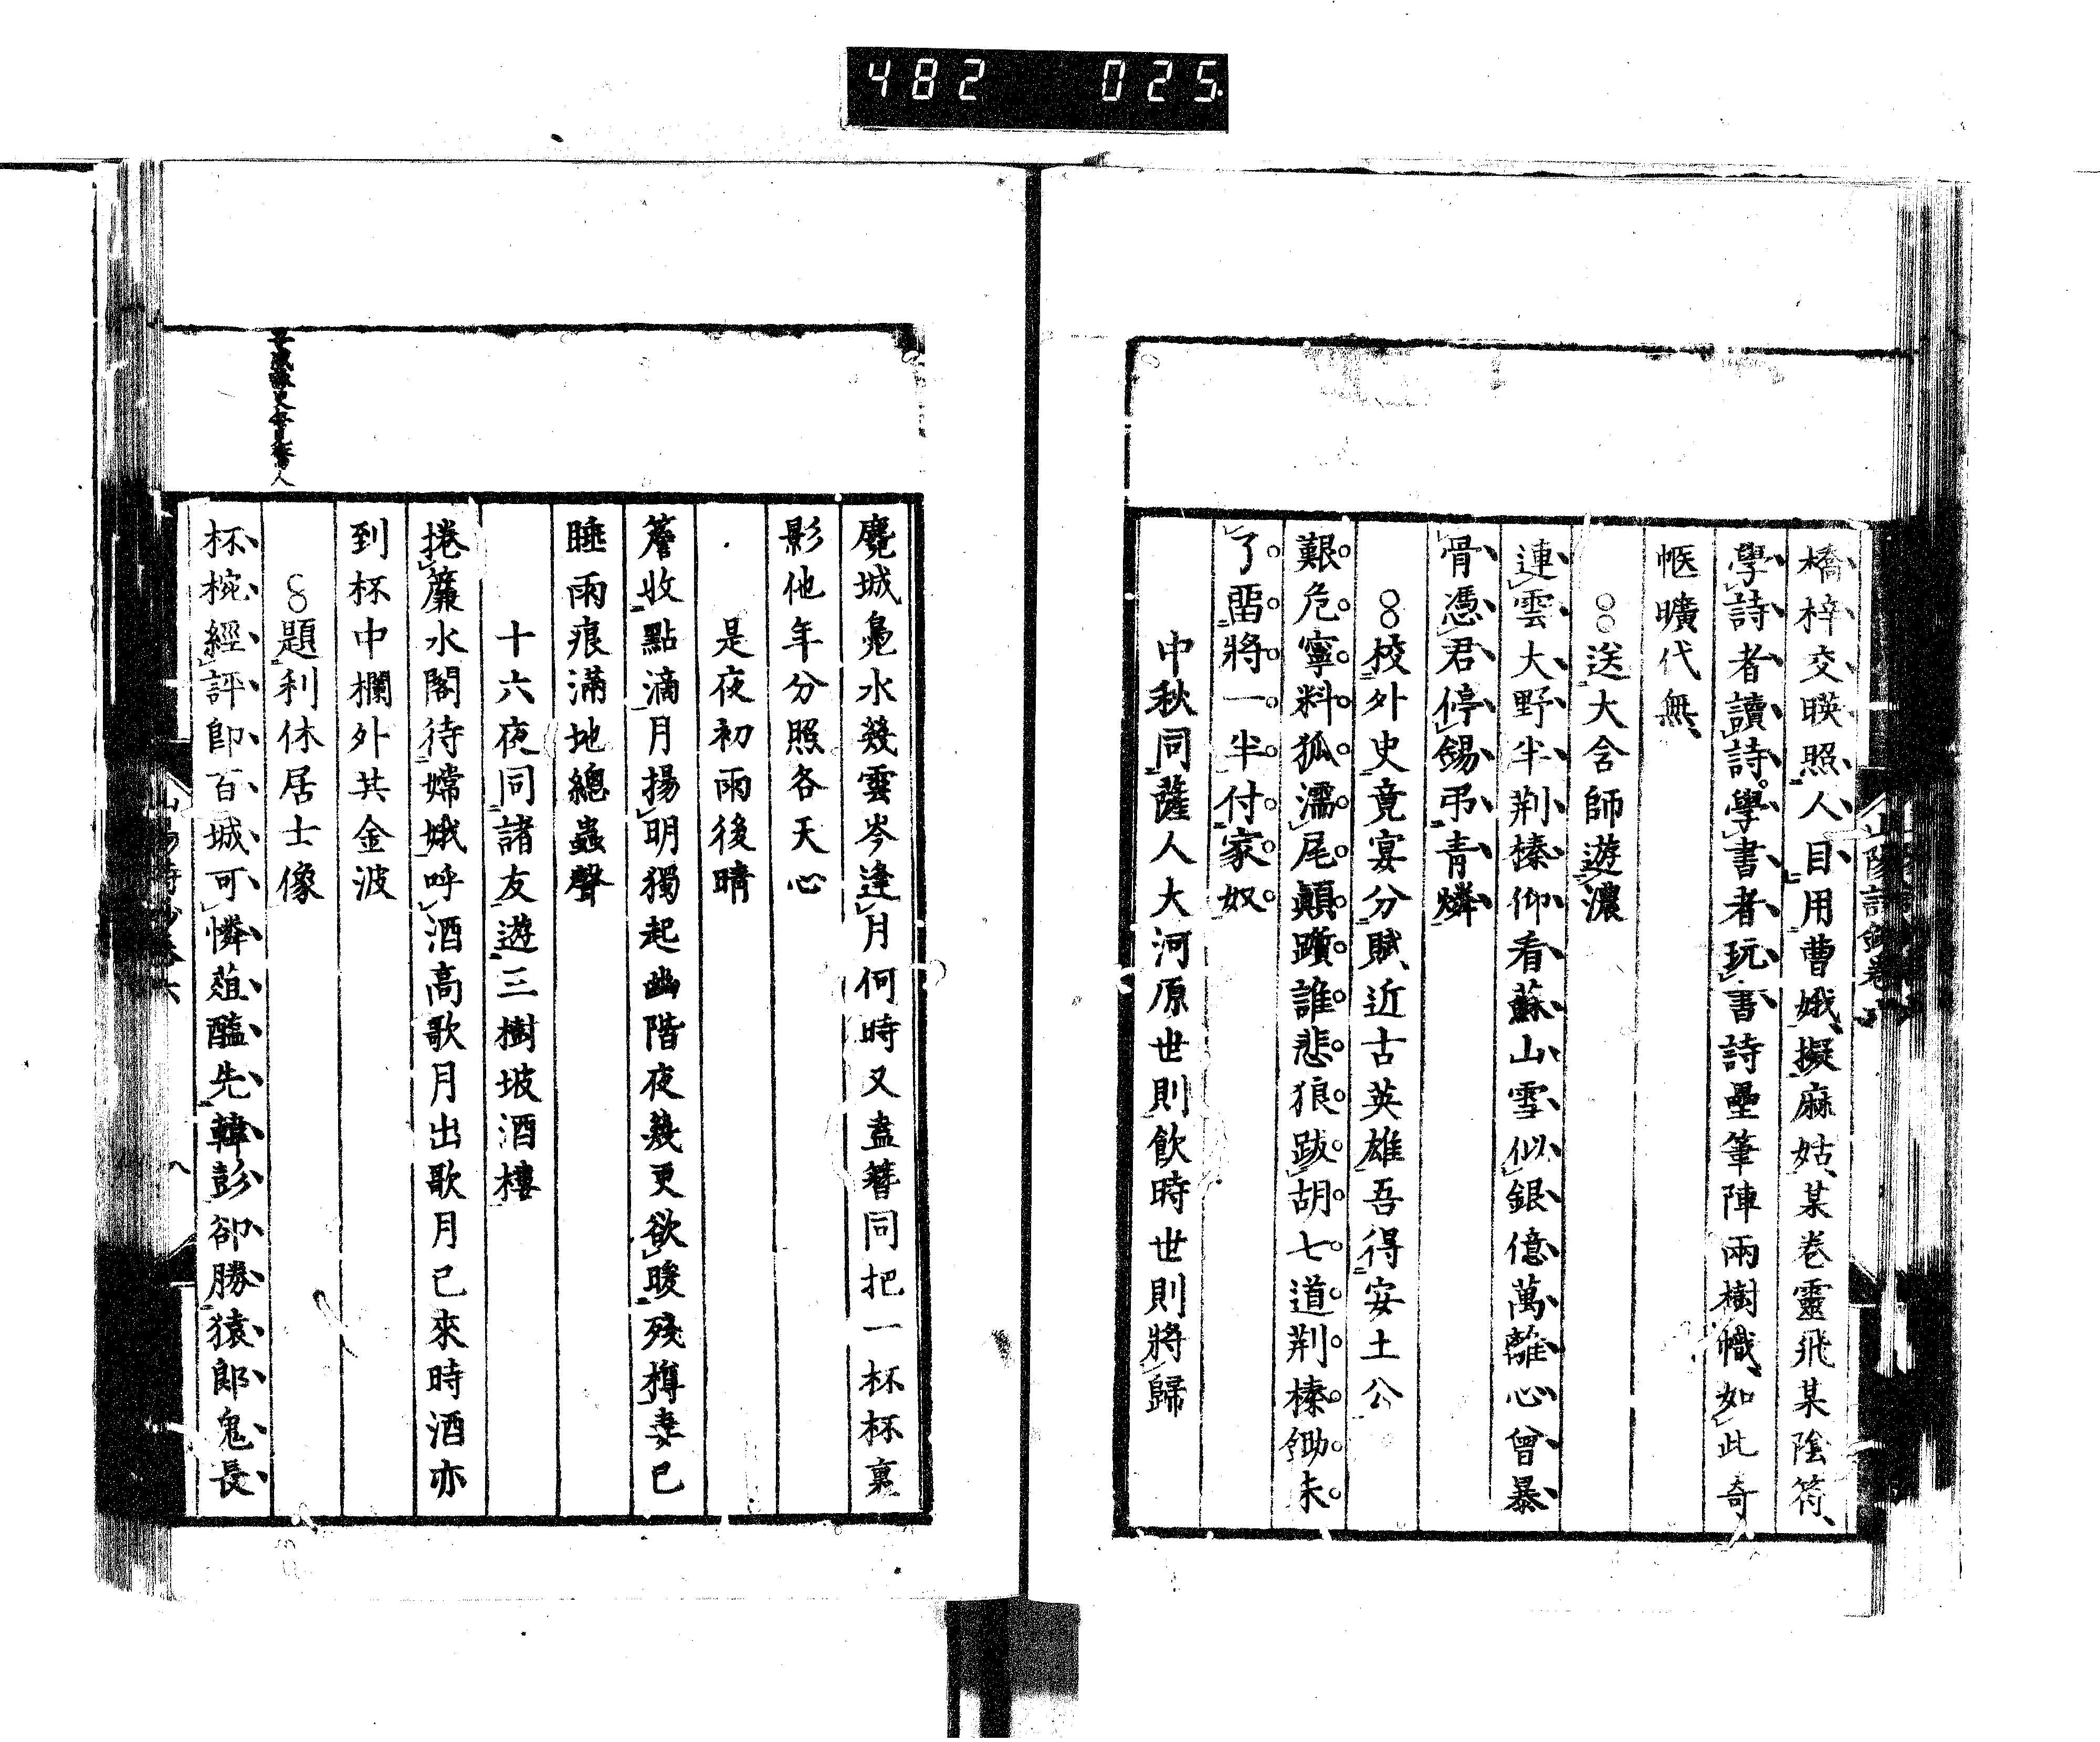 482 025
橋梓交暎照人目用曹娥擬麻姑某卷靈飛某陰符
學詩者讀詩學書者玩書詩壘筆陣兩樹幟如此奇
帳曠代無
送大含師遊濃
連雲大野半荆榛仰看蘇山雪似銀億萬離心曾暴
骨憑君停錫弔青燐
校外史竟宴分賦近古英雄吾得安土公
艱危寧料狐濡尾顛躓誰悲狼跋胡七道荆榛鋤未
了畱將一半付家奴
中秋同薩人大河原世則飲時世則將歸
麑城鳧水幾雲岑逢月何時又盍簪同把一杯杯裏
影他年分照各天心
是夜初雨後晴
簷收點滴月揚明獨起幽階夜幾更欲暖殘樽妻已
睡雨痕滿地總蟲聲
十六夜同諸友遊三樹坡酒樓
捲簾水閣待嫦娥呼酒高歌月出歌月已來時酒亦
到杯中欄外共金波
題利休居士像
杯椀經評即百城可憐葅醢先韓彭卻勝猿郎鬼長